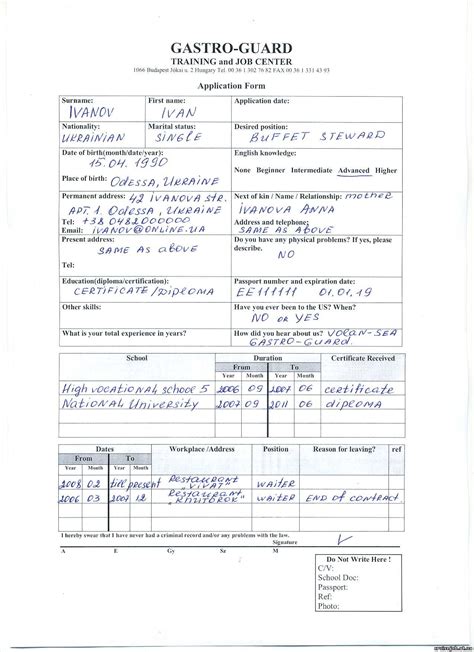 GASTRO-GUARD
TRAINING and JOB CENTER
1066 Budapest Jókai u. 2 Hungary Tel. 00 36 1 302 76 82 FAX 00 36 1 331 43 93
Application Form
Surname: IVANOV
First name: IVAN
Application date:
Nationality: UKRAINIAN
Marital status: SINGLE
Desired position: BUFFET STEWARD
Date of birth(month/date/year): 15.04.1990
Place of birth: ODESSA, UKRAINE
English knowledge:
None Beginner Intermediate Advanced Higher
Permanent address: 42 IVANOVA STR.
APT. 1. Odessa, UKRAINE
Tel: +38 0482000000
Email: IVANOV@ONLINE.UA
Next of kin / Name / Relationship: mother
IVANOVA ANNA
Address and telephone:
SAME AS ABOVE
Present address:
SAME AS above
Tel:
Do you have any physical problems? If yes, please describe.
NO
Education(diploma/certification):
CERTIFICATE/Diploma
Passport number and expiration date:
EE111111 01.01.19
Other skills:
Have you ever been to the US? When?
NO or YES
What is your total experience in years?
How did you hear about us? VOLAN-SEA
GASTRO-GUARD.
School Duration Certificate Received
From To
Year Month Year Month
High vocational school 5 2006 09 2007 06 certificate
National University 2007 09 2011 06 diploma
Dates Workplace /Address Position Reason for leaving? ref
From To
Year Month Year Month
2008 02 till present Restaurant "VIVAT" WAITER
2006 03 2007 12 Restaurant, WAITER END OF CONTRACT
I hereby swear that I have never had a criminal record and/or any problems with the law.
Signature
A E Gy Sz M
Do Not Write Here !
C/V:
School Doc:
Passport:
Ref:
Photo: